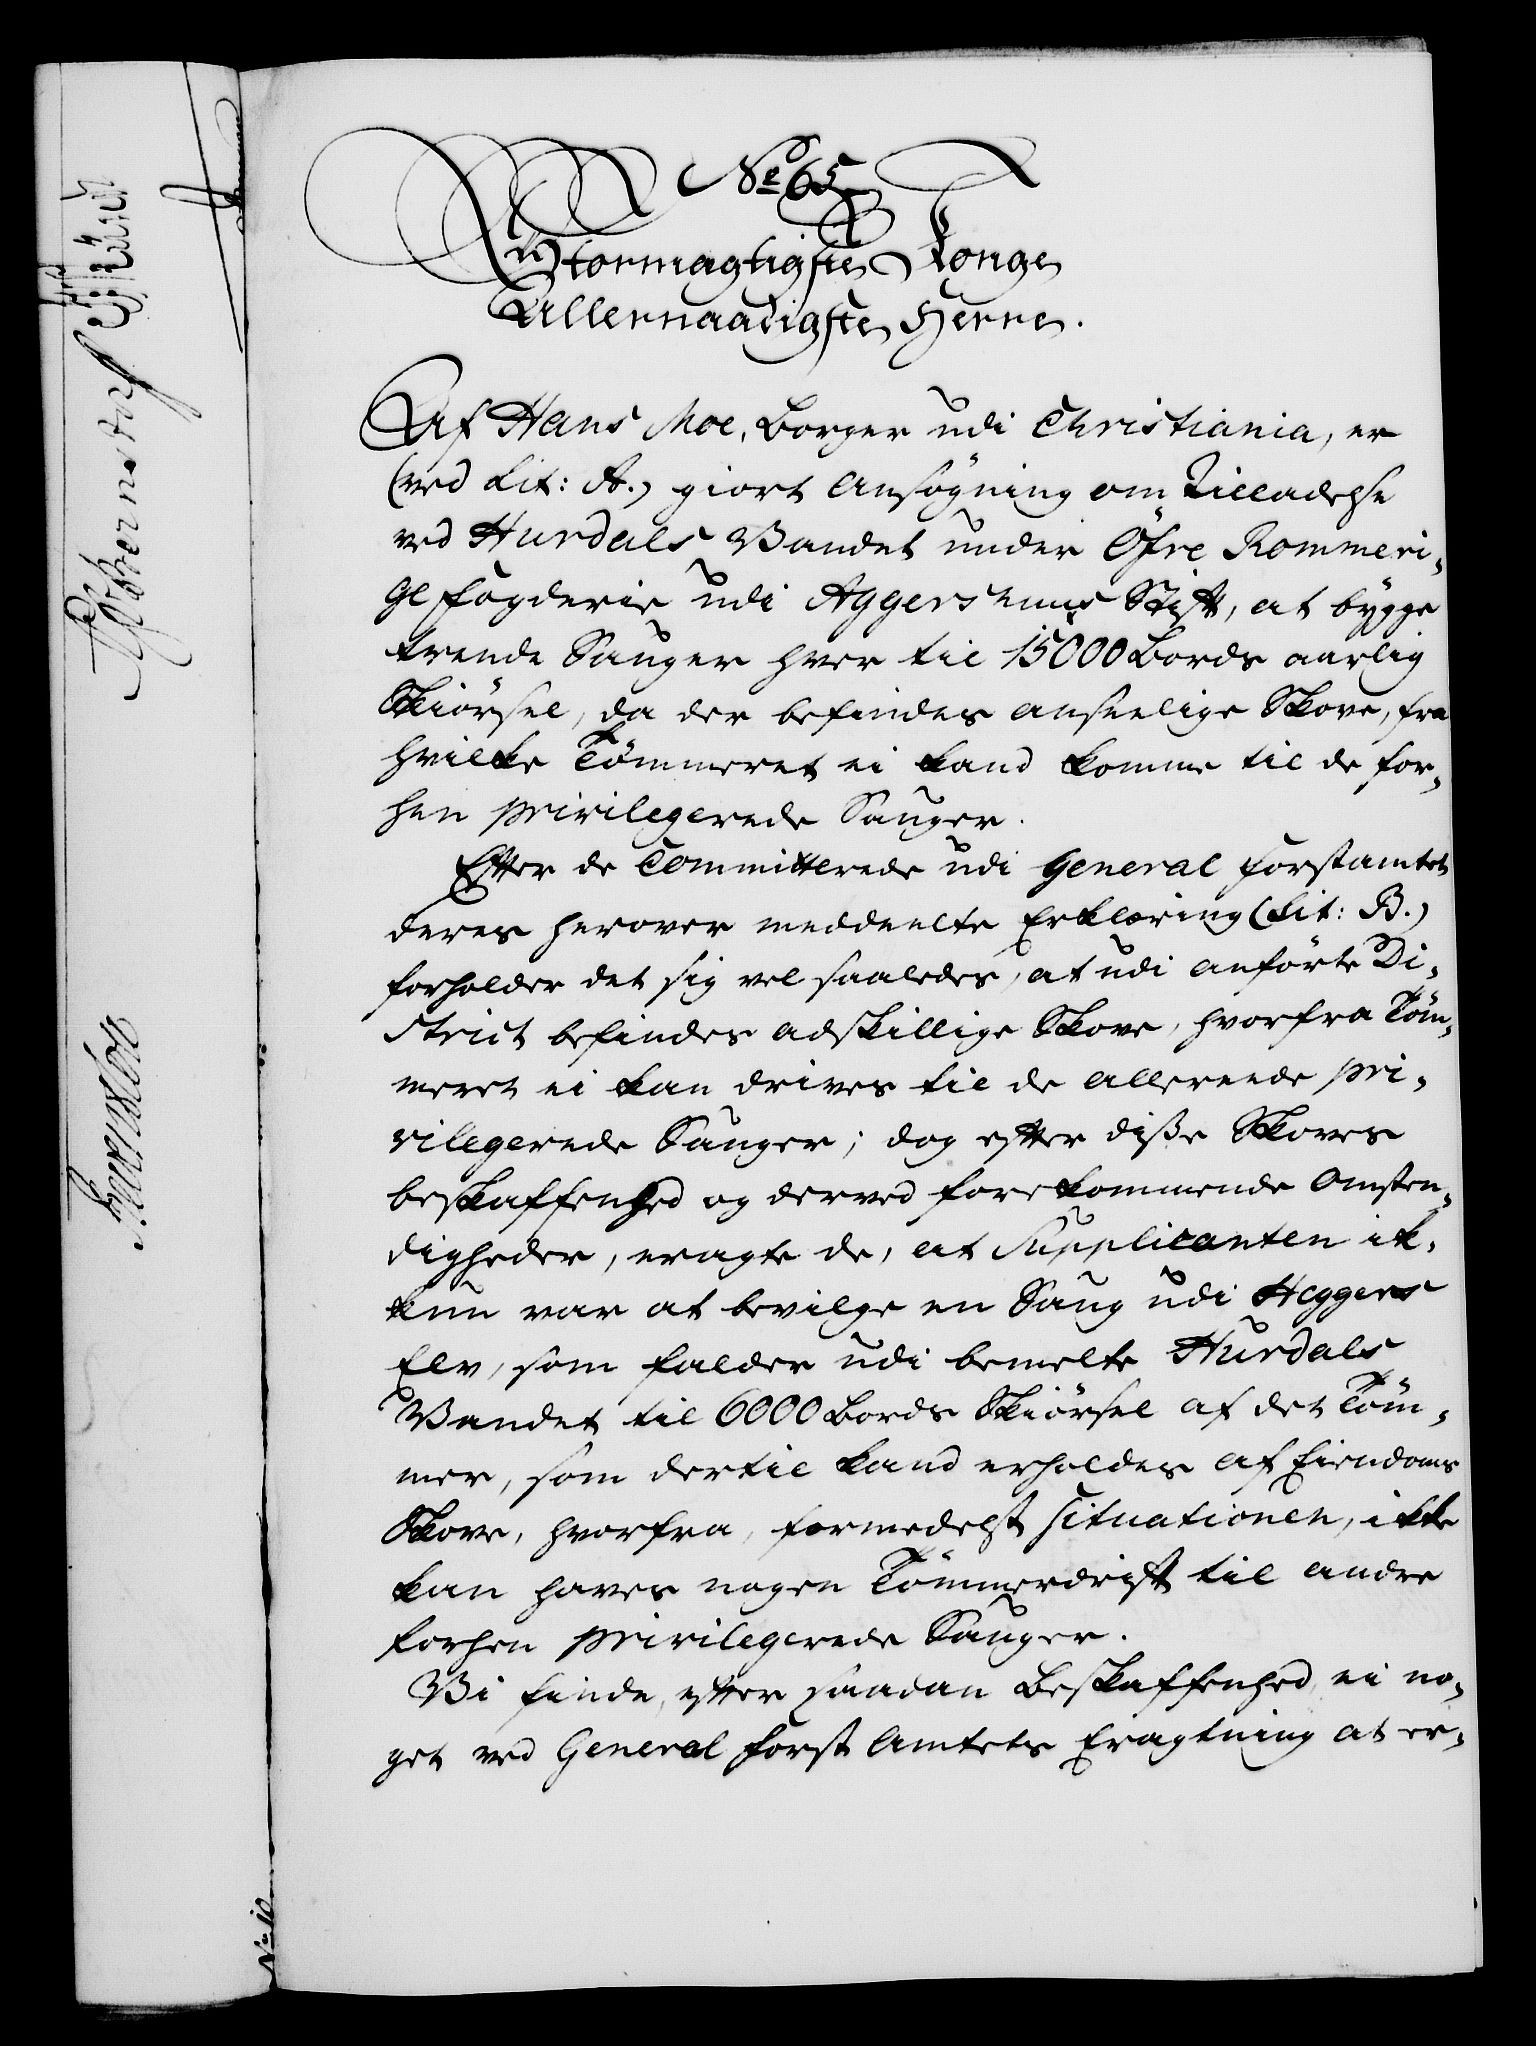 No 65
Stormægtigste Konge
Allernaadigste Herre.
Af Hans Moe, Borger udi Christiania, er
(ved Lit: A.) giort Ansøgning om Tilladelse
ved Hurdals Vandet under Öfre Rommeri-
ge Fogderie udi Aggershuus Stift, at bygge
trende Sauger hver til 15000 Bords aarlig
Skiørsel, da der befindes anseelige Skove, fra
hvilke Tömmeret ei kand komme til de for-
hen privilegerede Sauger.
Efter de Committerede udi General Forstamtet
deres herover meddeelte Erklæring (Lit: B.)
forholder det sig vel saaledes, at udi anførte Di-
strict befindes adskillige Skove, hvorfra Töm-
meret ei kan drives til de allereede pri-
vilegerede Sauger; dog efter diße Skoves
beskaffenhed og derved forekommende Omsten-
digheder, eragte de, at Supplicanten ik-
kun var at bevilge en Saug udi Heggers
Elv, som falder udi bemelte Hurdals
Vandet til 6000 Bords Skiørsel af det Töm-
mer, som dertil kand erholdes af Eiendoms
Skove, hvorfra, formedelst Situationen, ikke
kan haves nogen Tömmerdrift til andre
forhen privilegerede Sauger.
Vi finde, efter saadan Beskaffenhed, ei no-
get ved General Forst Amtets Eragtning at er-
No 10